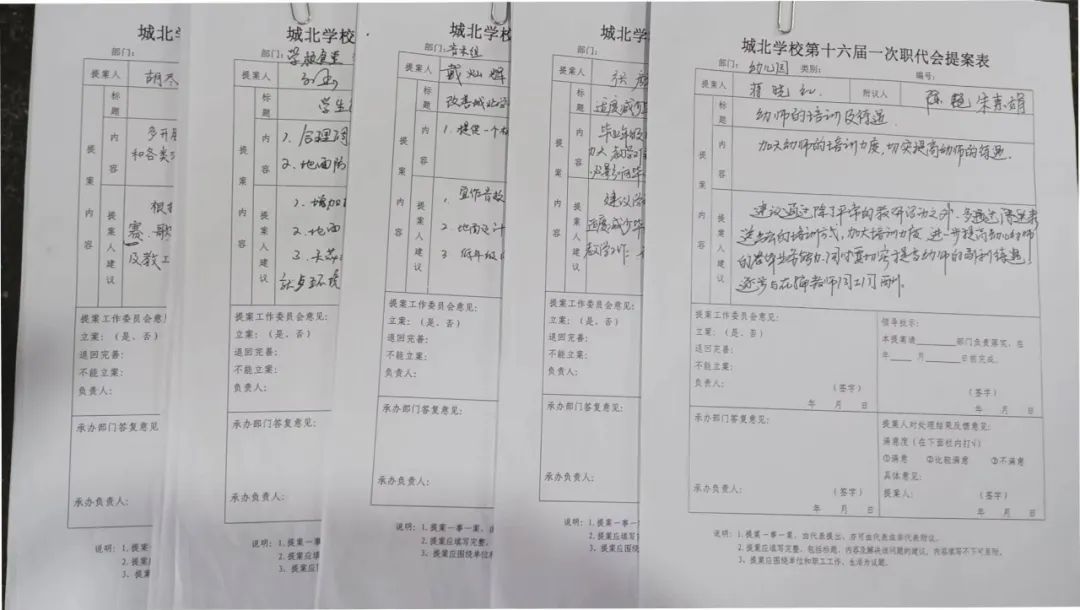 城北学
部门：
提案人 胡
标题
提案内容
内容 多开展
和各类
提案人建议 根据
赛、歌
及教工
提案工作委员会意见：
立案：（是、否）
退回完善：
不能立案：
负责人：
承办部门答复意见：
承办负责人：
说明：1.提案一事一案，
2.提案应填写
3、提案应
城北学校
部门：学校食堂
提案人
标题 学生
提案内容
内容 1、合理调
2、地面防
提案人建议 1、增加
2、地面
3、
站点环境
提案工作委员会意见：
立案：（是、否）
退回完善：
不能立案：
负责人：
承办部门答复意见：
承办负责人：
说明：1.提案一事一案，
2.提案应填写
3、提案应围
城北学校
部门：音美组
提案人 戴灿辉
标题 改善城北学
提案内容
内容 1、提供一个
提案人建议 1、宜作音校
2、地面设计
3 低年级
提案工作委员会意见：
立案：（是、否）
退回完善：
不能立案：
负责人：
承办部门答复意见：
承办负责人：
说明：1.提案一事一案，由
2.提案应填写完
3、提案应围绕单位和
城北学校
部门：
提案人 张
标题 适度减少
提案内容
内容 毕业年级
加大教学
提案人建议 建议学
适度减少毕
教学工作
提案工作委员会意见：
立案：（是、否）
退回完善：
不能立案：
负责人：
承办部门答复意见：
承办负责人：
说明：1.提案一事一
2.提案应填写完
3、提案应围绕
城北学校第十六届一次职代会提案表
部门：幼儿园 类别： 编号：
提案人 蒋晓红 附议人 陈艳 朱素娟
标题 幼师的培训及待遇
提案内容
内容 加大幼师的培训力度，切实提高幼师的待遇。
提案人建议 建议通过除了平常的教研活动之外，多通过
进去的培训方式，加大培训力度，进一步提高幼儿教师
的整体业务能力，同时真切实提高幼师的福利待遇，
逐步与在编教师同工同酬。
提案工作委员会意见： 领导批示：
立案：（是、否） 本提案请______部门负责落实，在
退回完善： 年____月____日前完成。
不能立案：
负责人： （签字） （签字）
年 月 日 年 月 日
承办部门答复意见： 提案人对处理结果反馈意见：
满意度（在下面栏内打√）
①满意 ②比较满意 ③不满意
具体意见：
承办负责人： （签字） 提案人： （签字）
年 月 日 年 月 日
说明：1.提案一事一案，由代表提出，亦可由代表或非代表附议。
2.提案应填写完整，包括标题、内容及解决该问题的建议，内容填写不下可另附。
3、提案应围绕单位和职工工作、生活为议题。